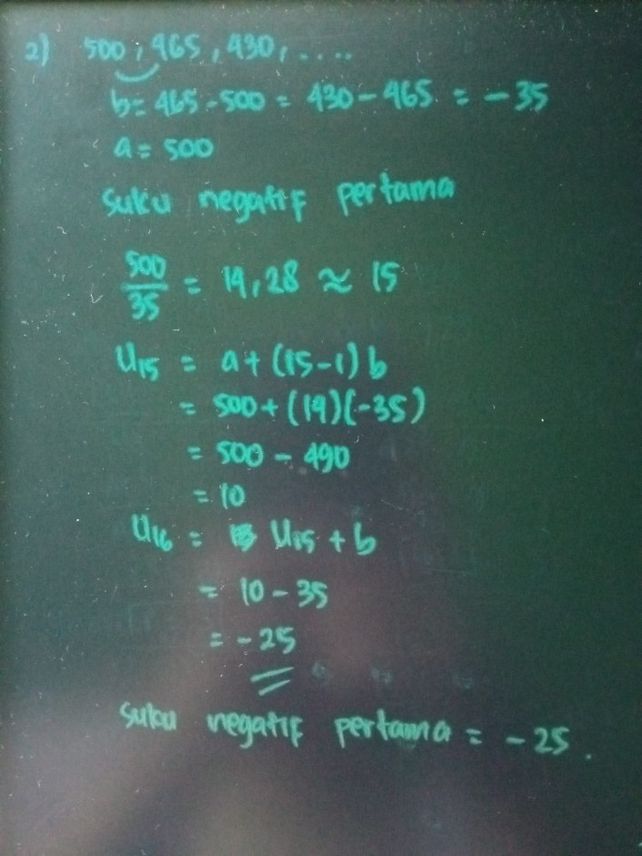 2) 500, 465, 430, ....
b = 465 - 500 = 430 - 465 = -35
a = 500
Suku negatif pertama
500/35 = 14,28 ≈ 15
U15 = a + (15-1) b
= 500 + (14)(-35)
= 500 - 490
= 10
U16 = U15 + b
= 10 - 35
= -25
Suku negatif pertama = -25.